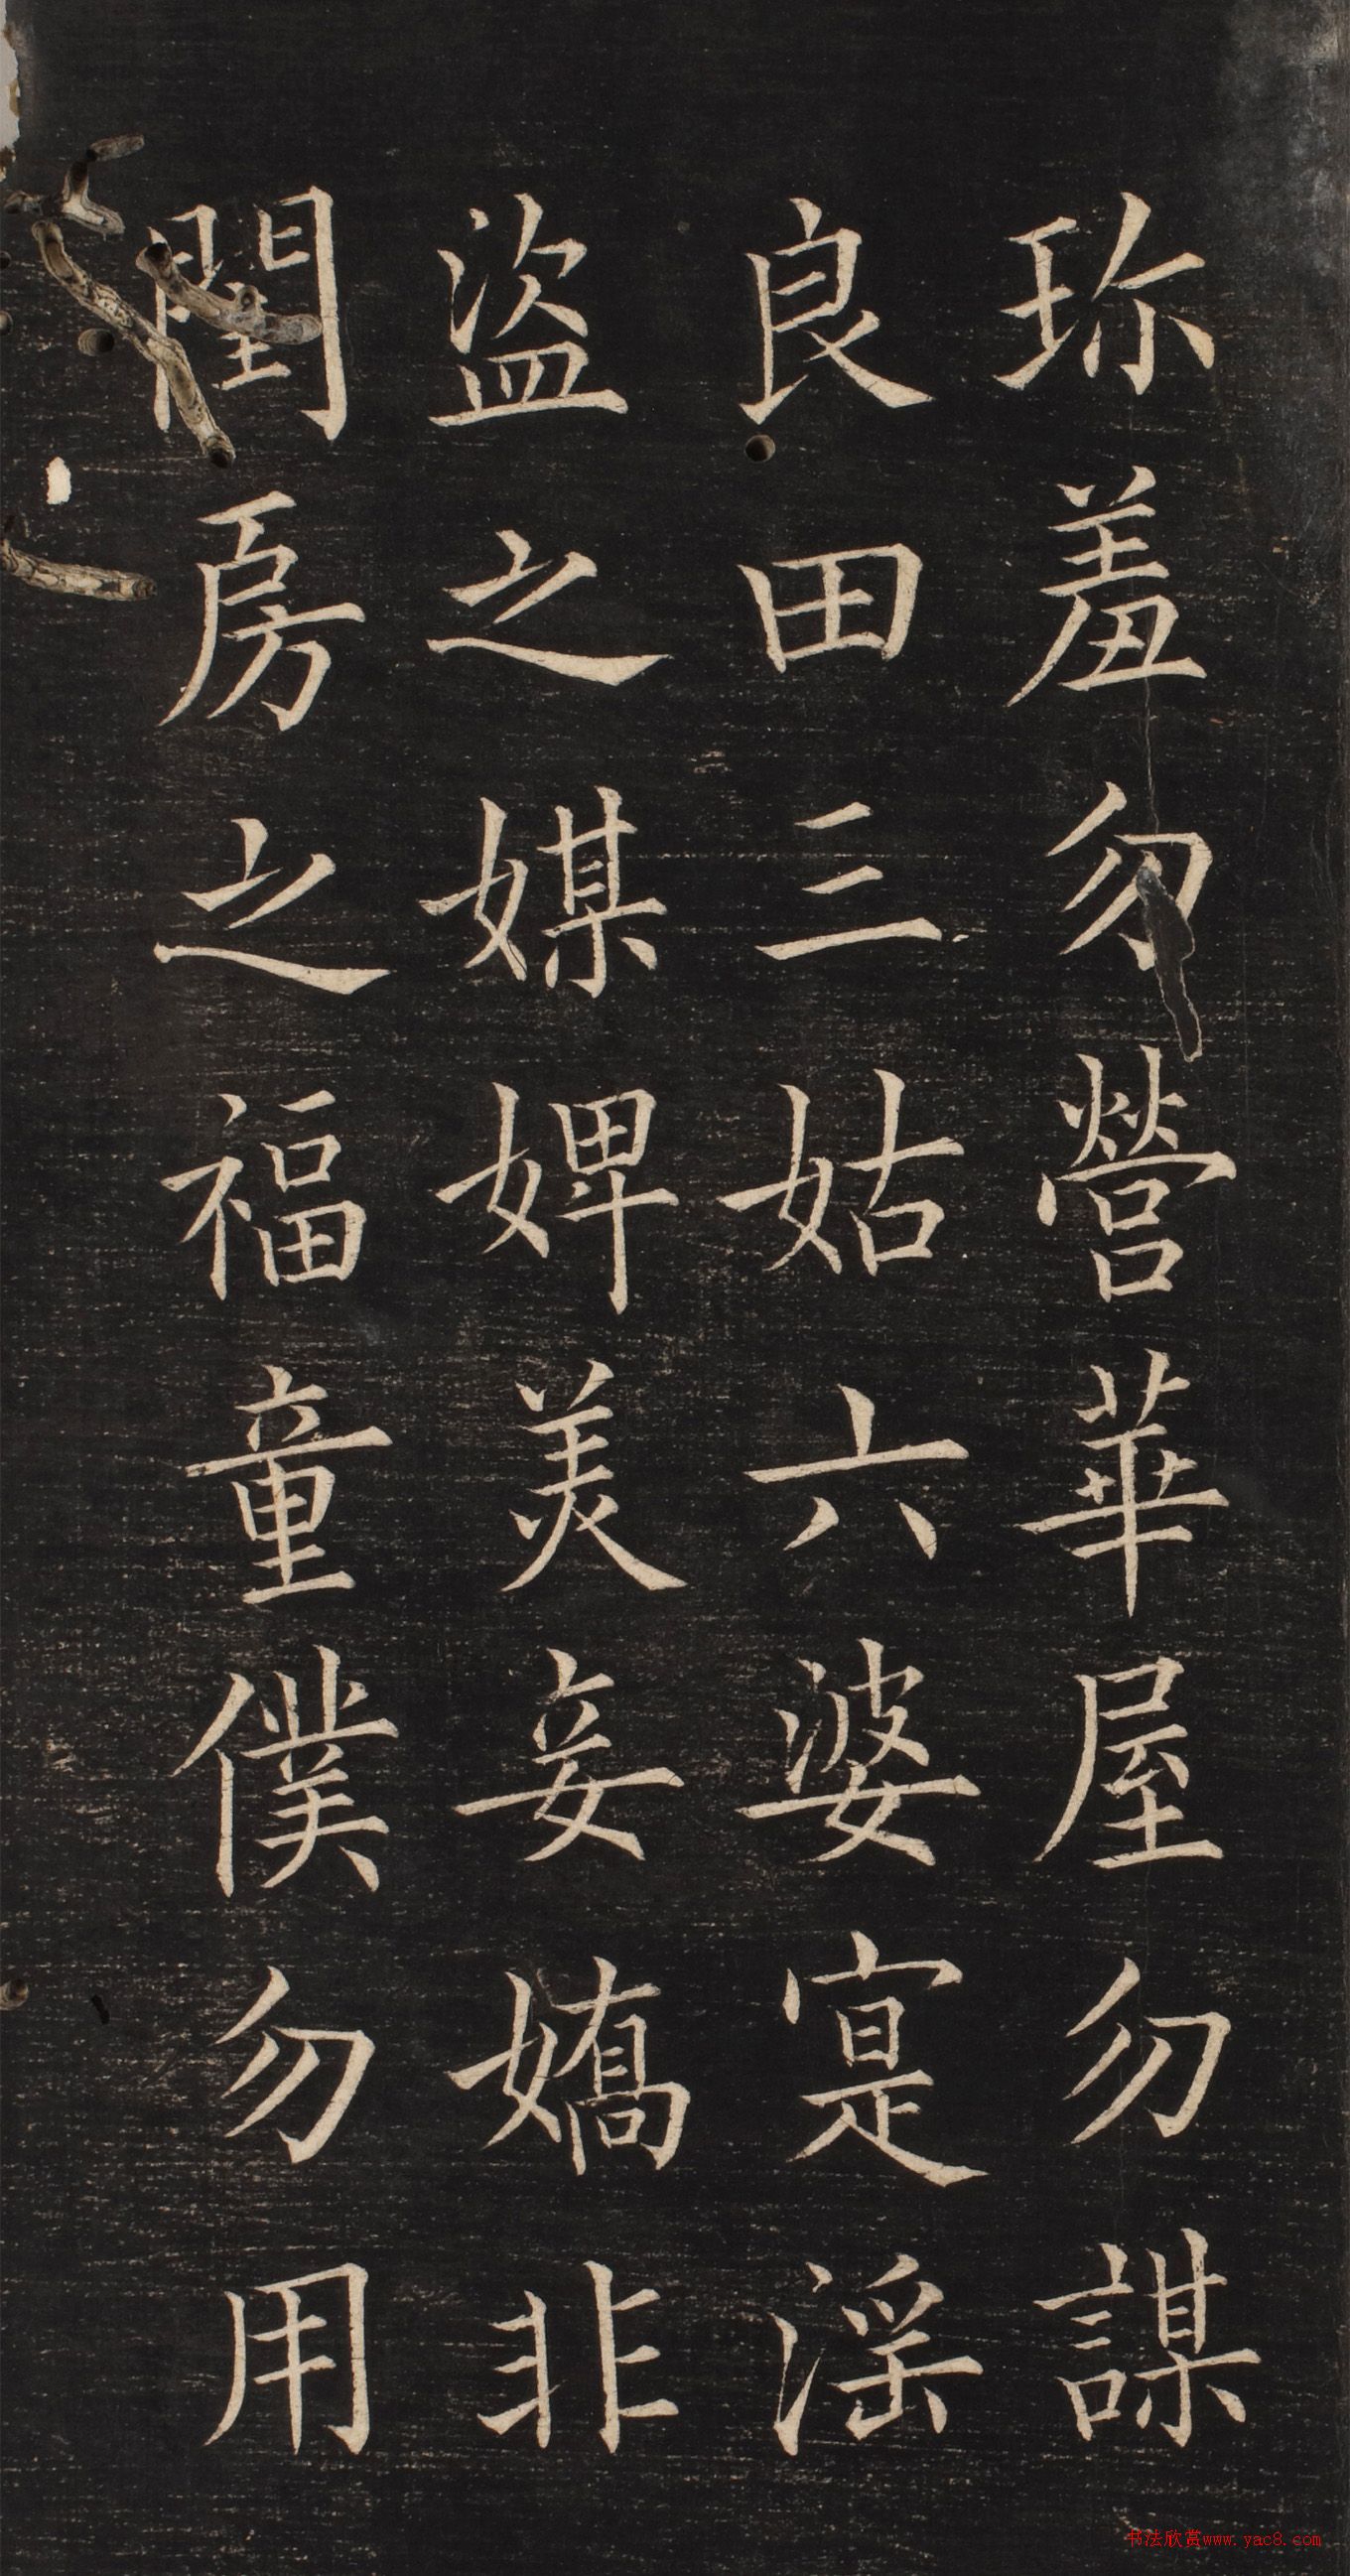 珎羞勿營華屋勿謀
良田三姑六婆寔淫
盗之媒婢美妾嬌非
閨房之福童僕勿用
书法欣赏www.yac8.com